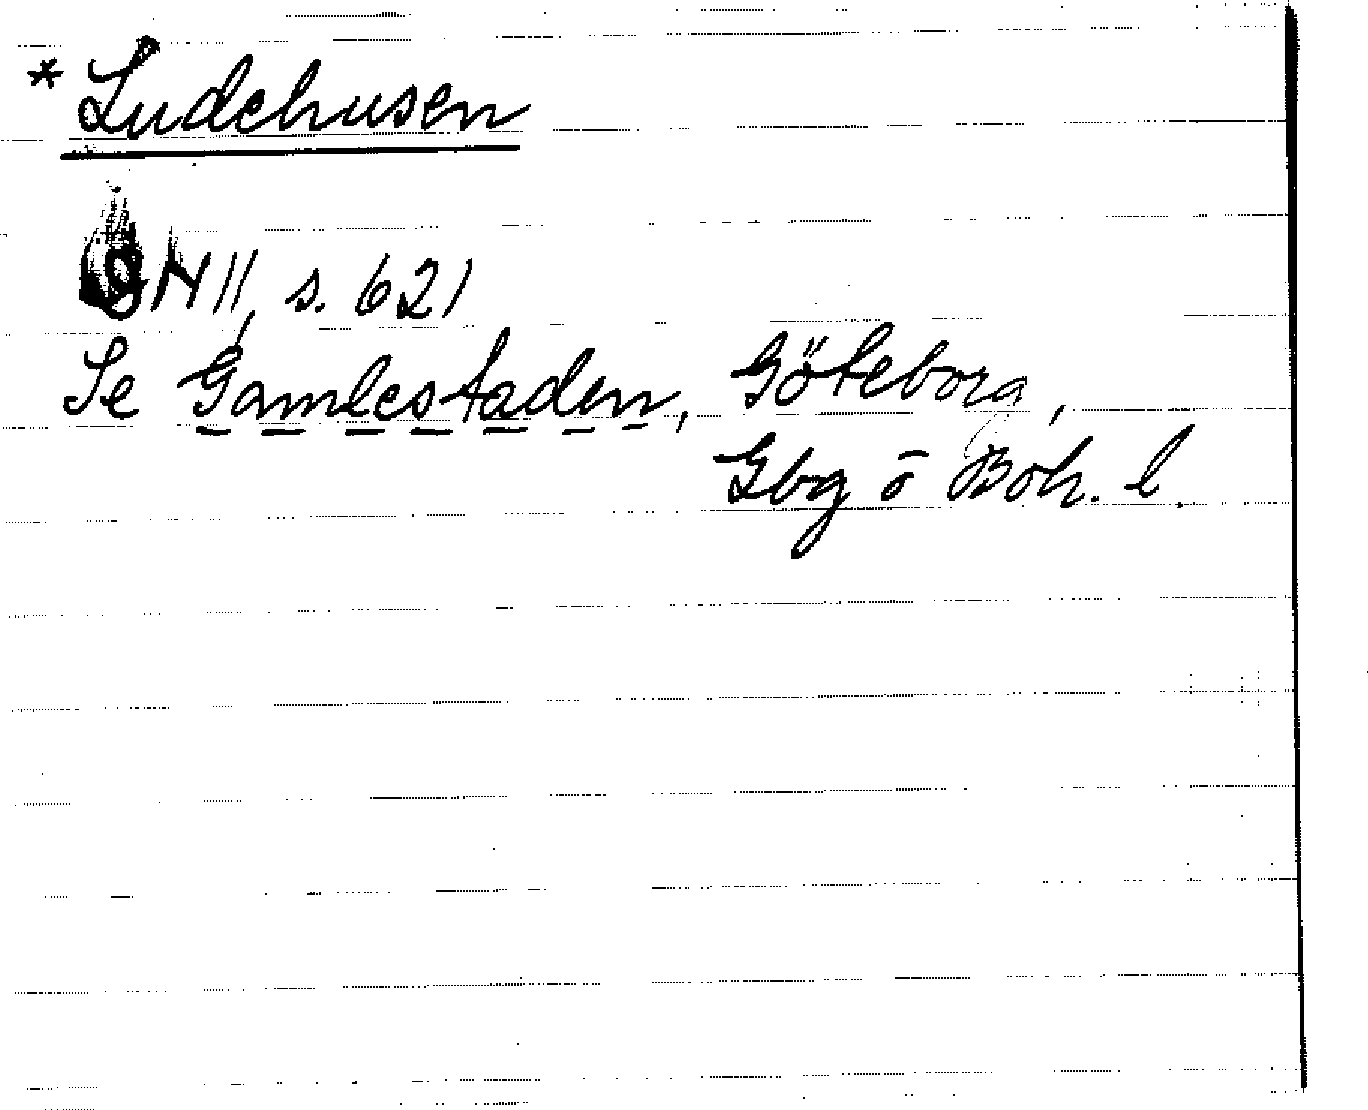 * Ludehusen
SN II, s. 621
Se Gamlestaden, Göteborg,
Gbg o Boh. l.